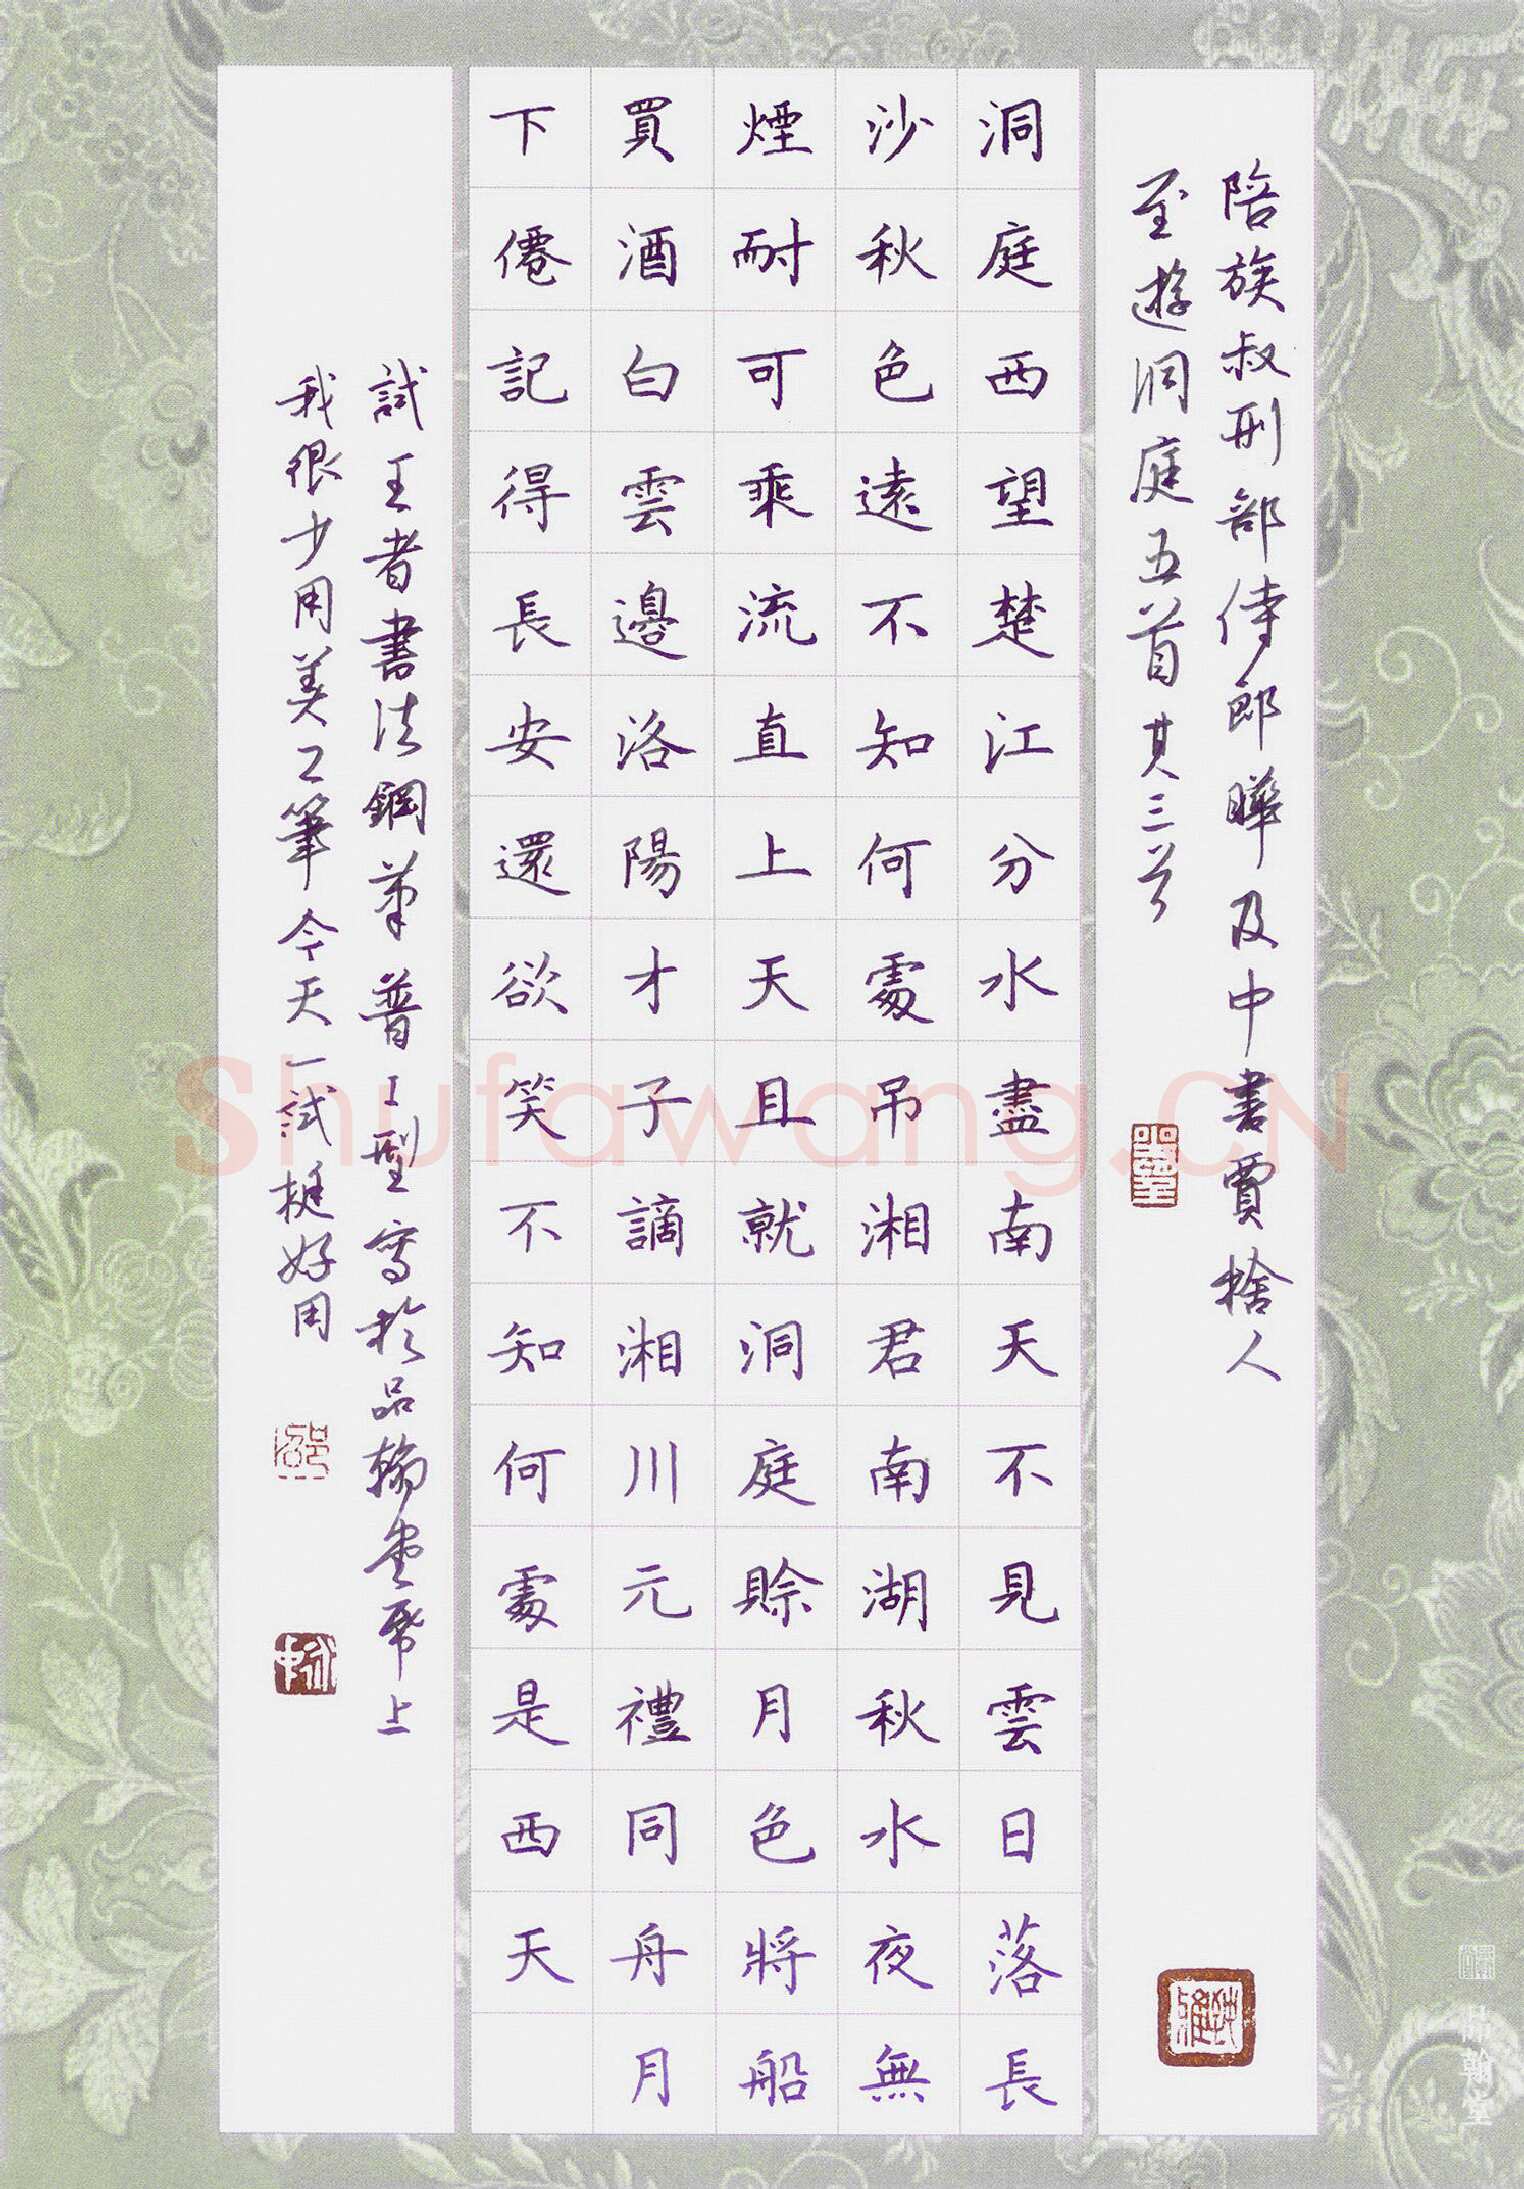 陪族叔刑部侍郎曄及中書賈捨人
至遊洞庭五首其三首
洞庭西望楚江分水盡南天不見雲日落長
沙秋色遠不知何處吊湘君南湖秋水夜無
煙耐可乘流直上天且就洞庭賒月色將船
買酒白雲邊洛陽才子謫湘川元禮同舟月
下僊記得長安還欲笑不知何處是西天
試王者書法鋼筆普工型寫於品翰堂紙上
我很少用美工筆今天一試挺好用
Shufawang.CN
品翰堂